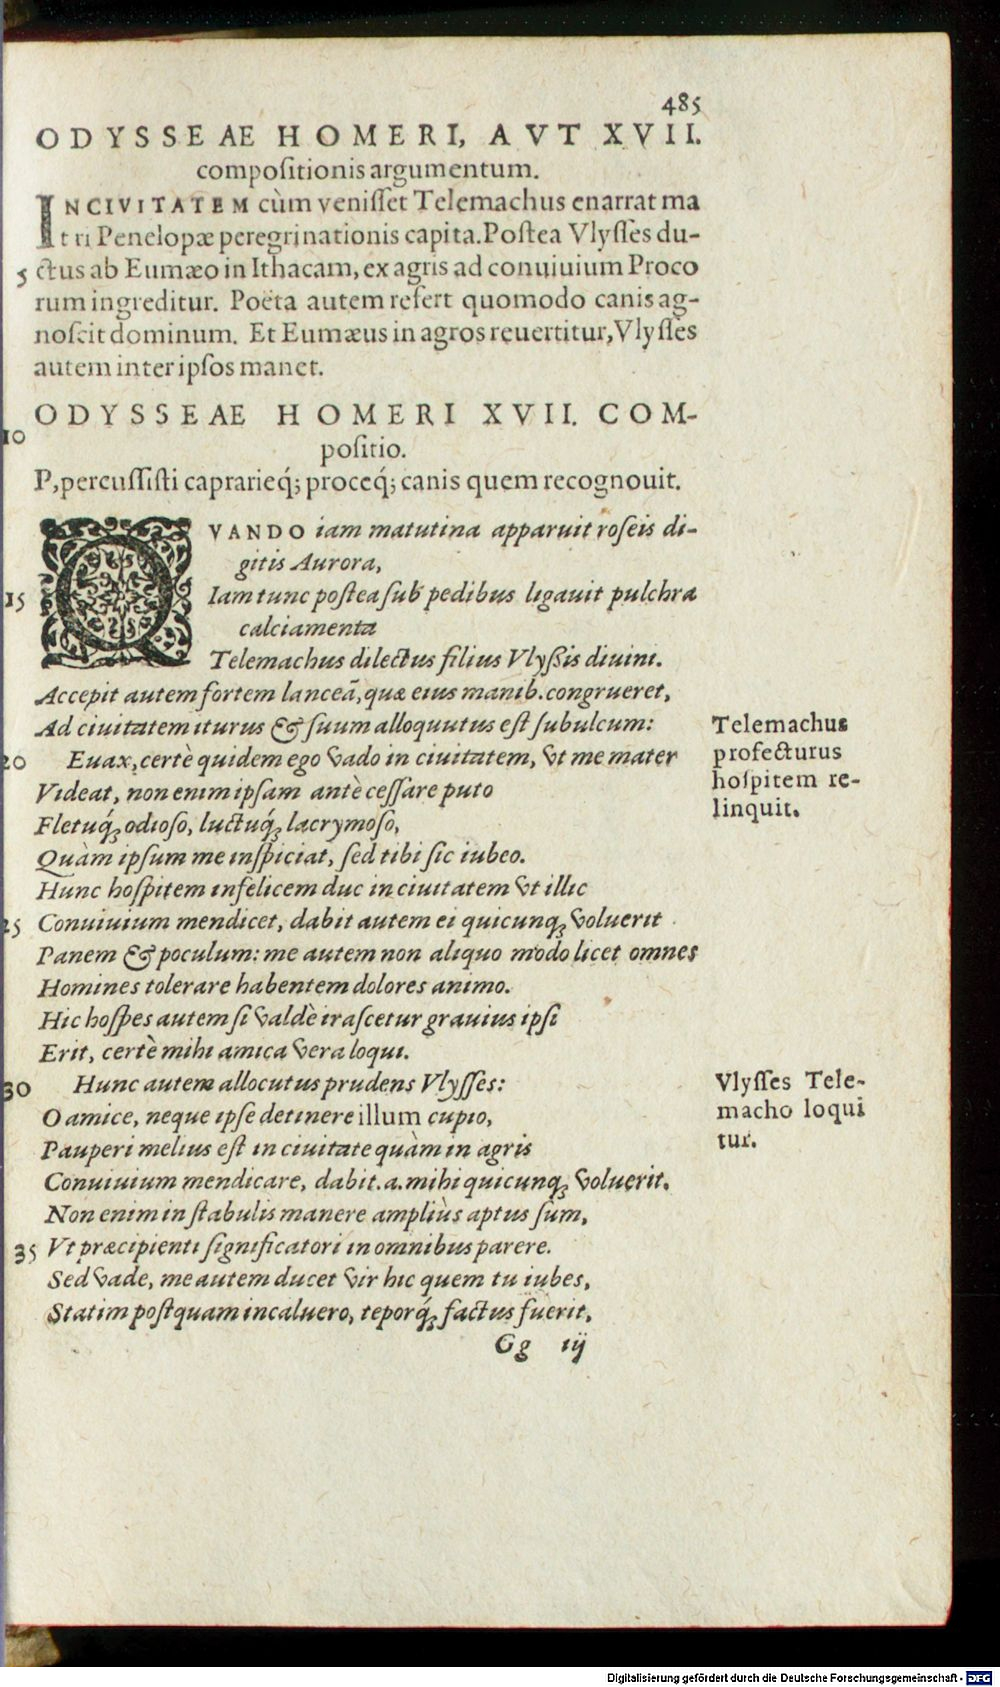 485
ODYSSEAE HOMERI, AVT XVII.
compoſitionis argumentum.
IN CIVITATEM cùm veniſſet Telemachus enarrat ma
tri Penelopæ peregrinationis capita. Poſtea Vlyſſes du-
5 ctus ab Eumæo in Ithacam, ex agris ad conuiuium Proco
rum ingreditur. Poëta autem refert quomodo canis ag-
noſcit dominum. Et Eumæus in agros reuertitur, Vlyſſes
autem inter ipſos manet.
ODYSSEAE HOMERI XVII. COM-
10
poſitio.
P, percuſſiſti caprarieq́; proceq́; canis quem recognouit.
QVANDO iam matutina apparuit roſeis di-
gitis Aurora,
15 Iam tunc poſtea ſub pedibus ligauit pulchra
calciamenta
Telemachus dilectus filius Vlyßis diuini.
Accepit autem fortem lanceã, quæ eius manib. congrueret,
Ad ciuitatem iturus & ſuum alloquutus eſt ſubulcum:
20 Euax, certè quidem ego vado in ciuitatem, vt me mater
Videat, non enim ipſam antè ceſſare puto
Fletuq́; odioſo, luctuq́; lacrymoſo,
Quàm ipſum me inſpiciat, ſed tibi ſic iubeo.
Hunc hoſpitem infelicem duc in ciuitatem vt illic
25 Conuiuium mendicet, dabit autem ei quicunq; voluerit
Panem & poculum: me autem non aliquo modo licet omnes
Homines tolerare habentem dolores animo.
Hic hoſpes autem ſi valdè iraſcetur grauius ipſi
Erit, certè mihi amica vera loqui.
30 Hunc autem allocutus prudens Vlyſſes:
O amice, neque ipſe detinere illum cupio,
Pauperi melius eſt in ciuitate quàm in agris
Conuiuium mendicare, dabit. a. mihi quicunq; voluerit.
Non enim in ſtabulis manere ampliùs aptus ſum,
35 Vt præcipienti ſignificatori in omnibus parere.
Sed vade, me autem ducet vir hic quem tu iubes,
Statim poſtquam incaluero, teporq́; factus fuerit,
Gg iij
Telemachus
profecturus
hoſpitem re-
linquit.
Vlyſſes Tele-
macho loqui
tur.
Digitalisierung gefördert durch die Deutsche Forschungsgemeinschaft - DFG